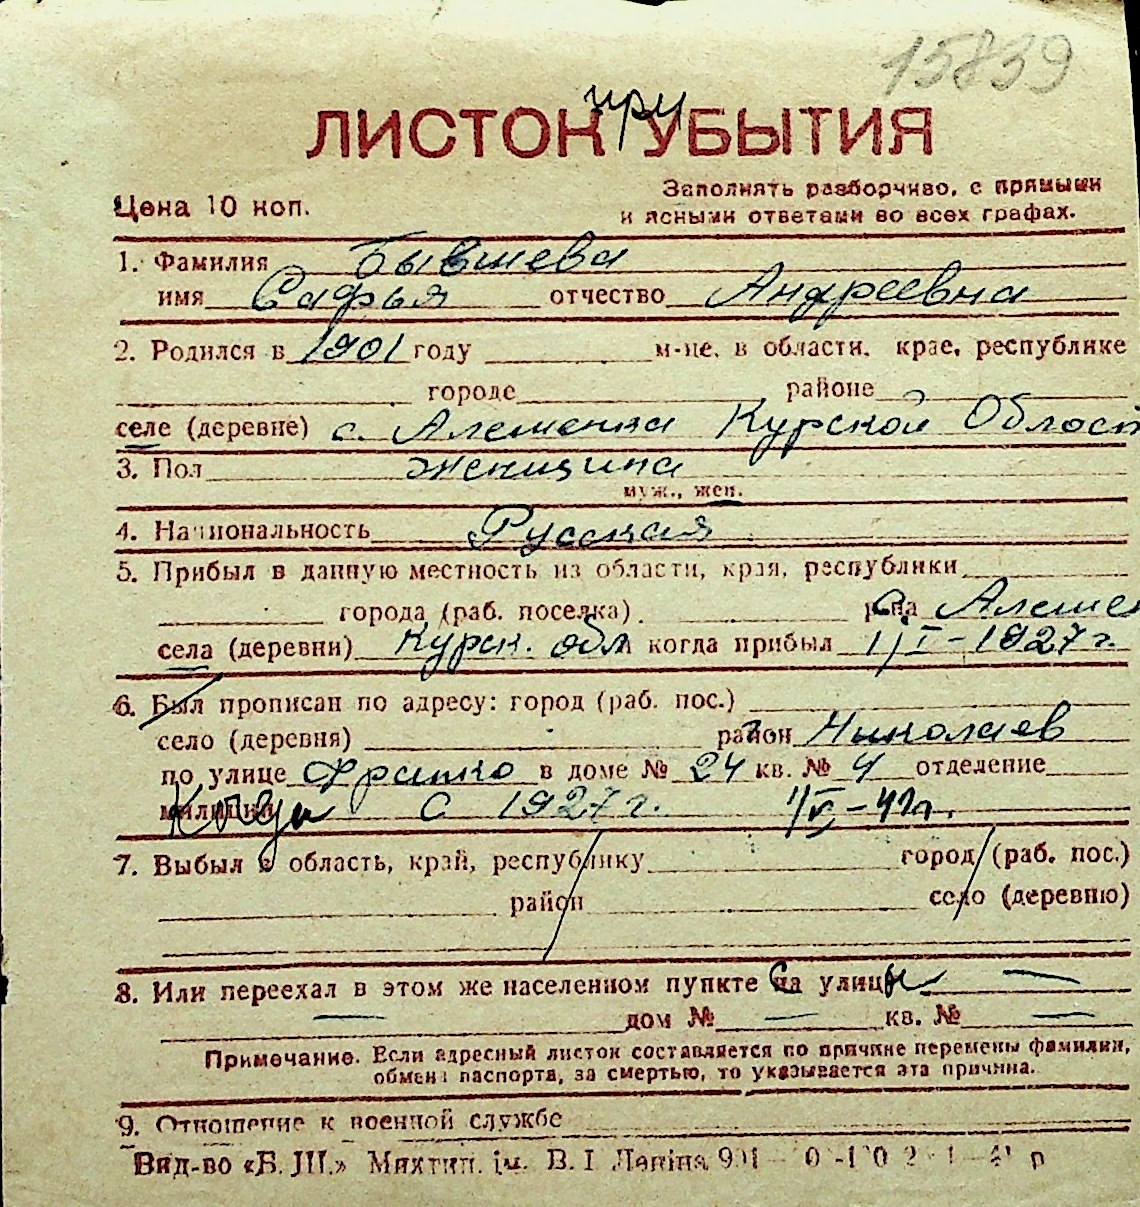 15839
ЛИСТОК при УБЫТИЯ
Цена 10 коп.
Заполнять разборчиво, с прямыми
и ясными ответами во всех графах.
1. Фамилия Бывшева
имя Сафья отчество Андреевна
2. Родился в 1901 году м-це, в области, крае, республике
городе районе
селе (деревне) с. Алешенка Курской Област
3. Пол женщина
муж., жен.
4. Национальность Русская
5. Прибыл в данную местность из области, края, республики
города (раб. поселка) р-на с. Алешен
села (деревни) Курск. обл когда прибыл 1/I-1927г.
6. Был прописан по адресу: город (раб. пос.)
село (деревня) район г Николаев
по улице Франко в доме № 24 кв. № 4 отделение
милиции Когда С 1927г.
7. Выбыл в область, край, республику город (раб. пос.)
район село (деревню)
8. Или переехал в этом же населенном пункте на с улицы —
— дом № — кв. № —
Примечание. Если адресный листок составляется по причине перемены фамилии,
обмена паспорта, за смертью, то указывается эта причина.
9. Отношение к военной службе
Вид-во «Б. Ш.» Миктип. ім. В. І Леніна